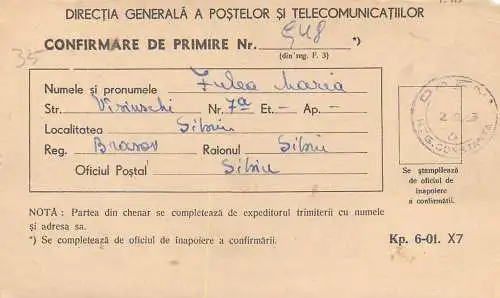 DIRECȚIA GENERALĂ A POȘTELOR ȘI TELECOMUNICAȚIILOR
35-
CONFIRMARE DE PRIMIRE Nr. 948 *)
(din reg. F. 3)
Numele și pronumele Fulea Maria
Str. Nr. 7a Et. - Ap. -
Localitatea Sibiu
Reg. Brasov Raionul Sibiu
Oficiul Poștal Sibiu
REG. CONSTANTA
Se ștampilează
de oficiul de
înapoiere
a confirmării.
NOTĂ : Partea din chenar se completează de expeditorul trimiterii cu numele
și adresa sa.
*) Se completează de oficiul de înapoiere a confirmării.
Kp. 6-01. X7